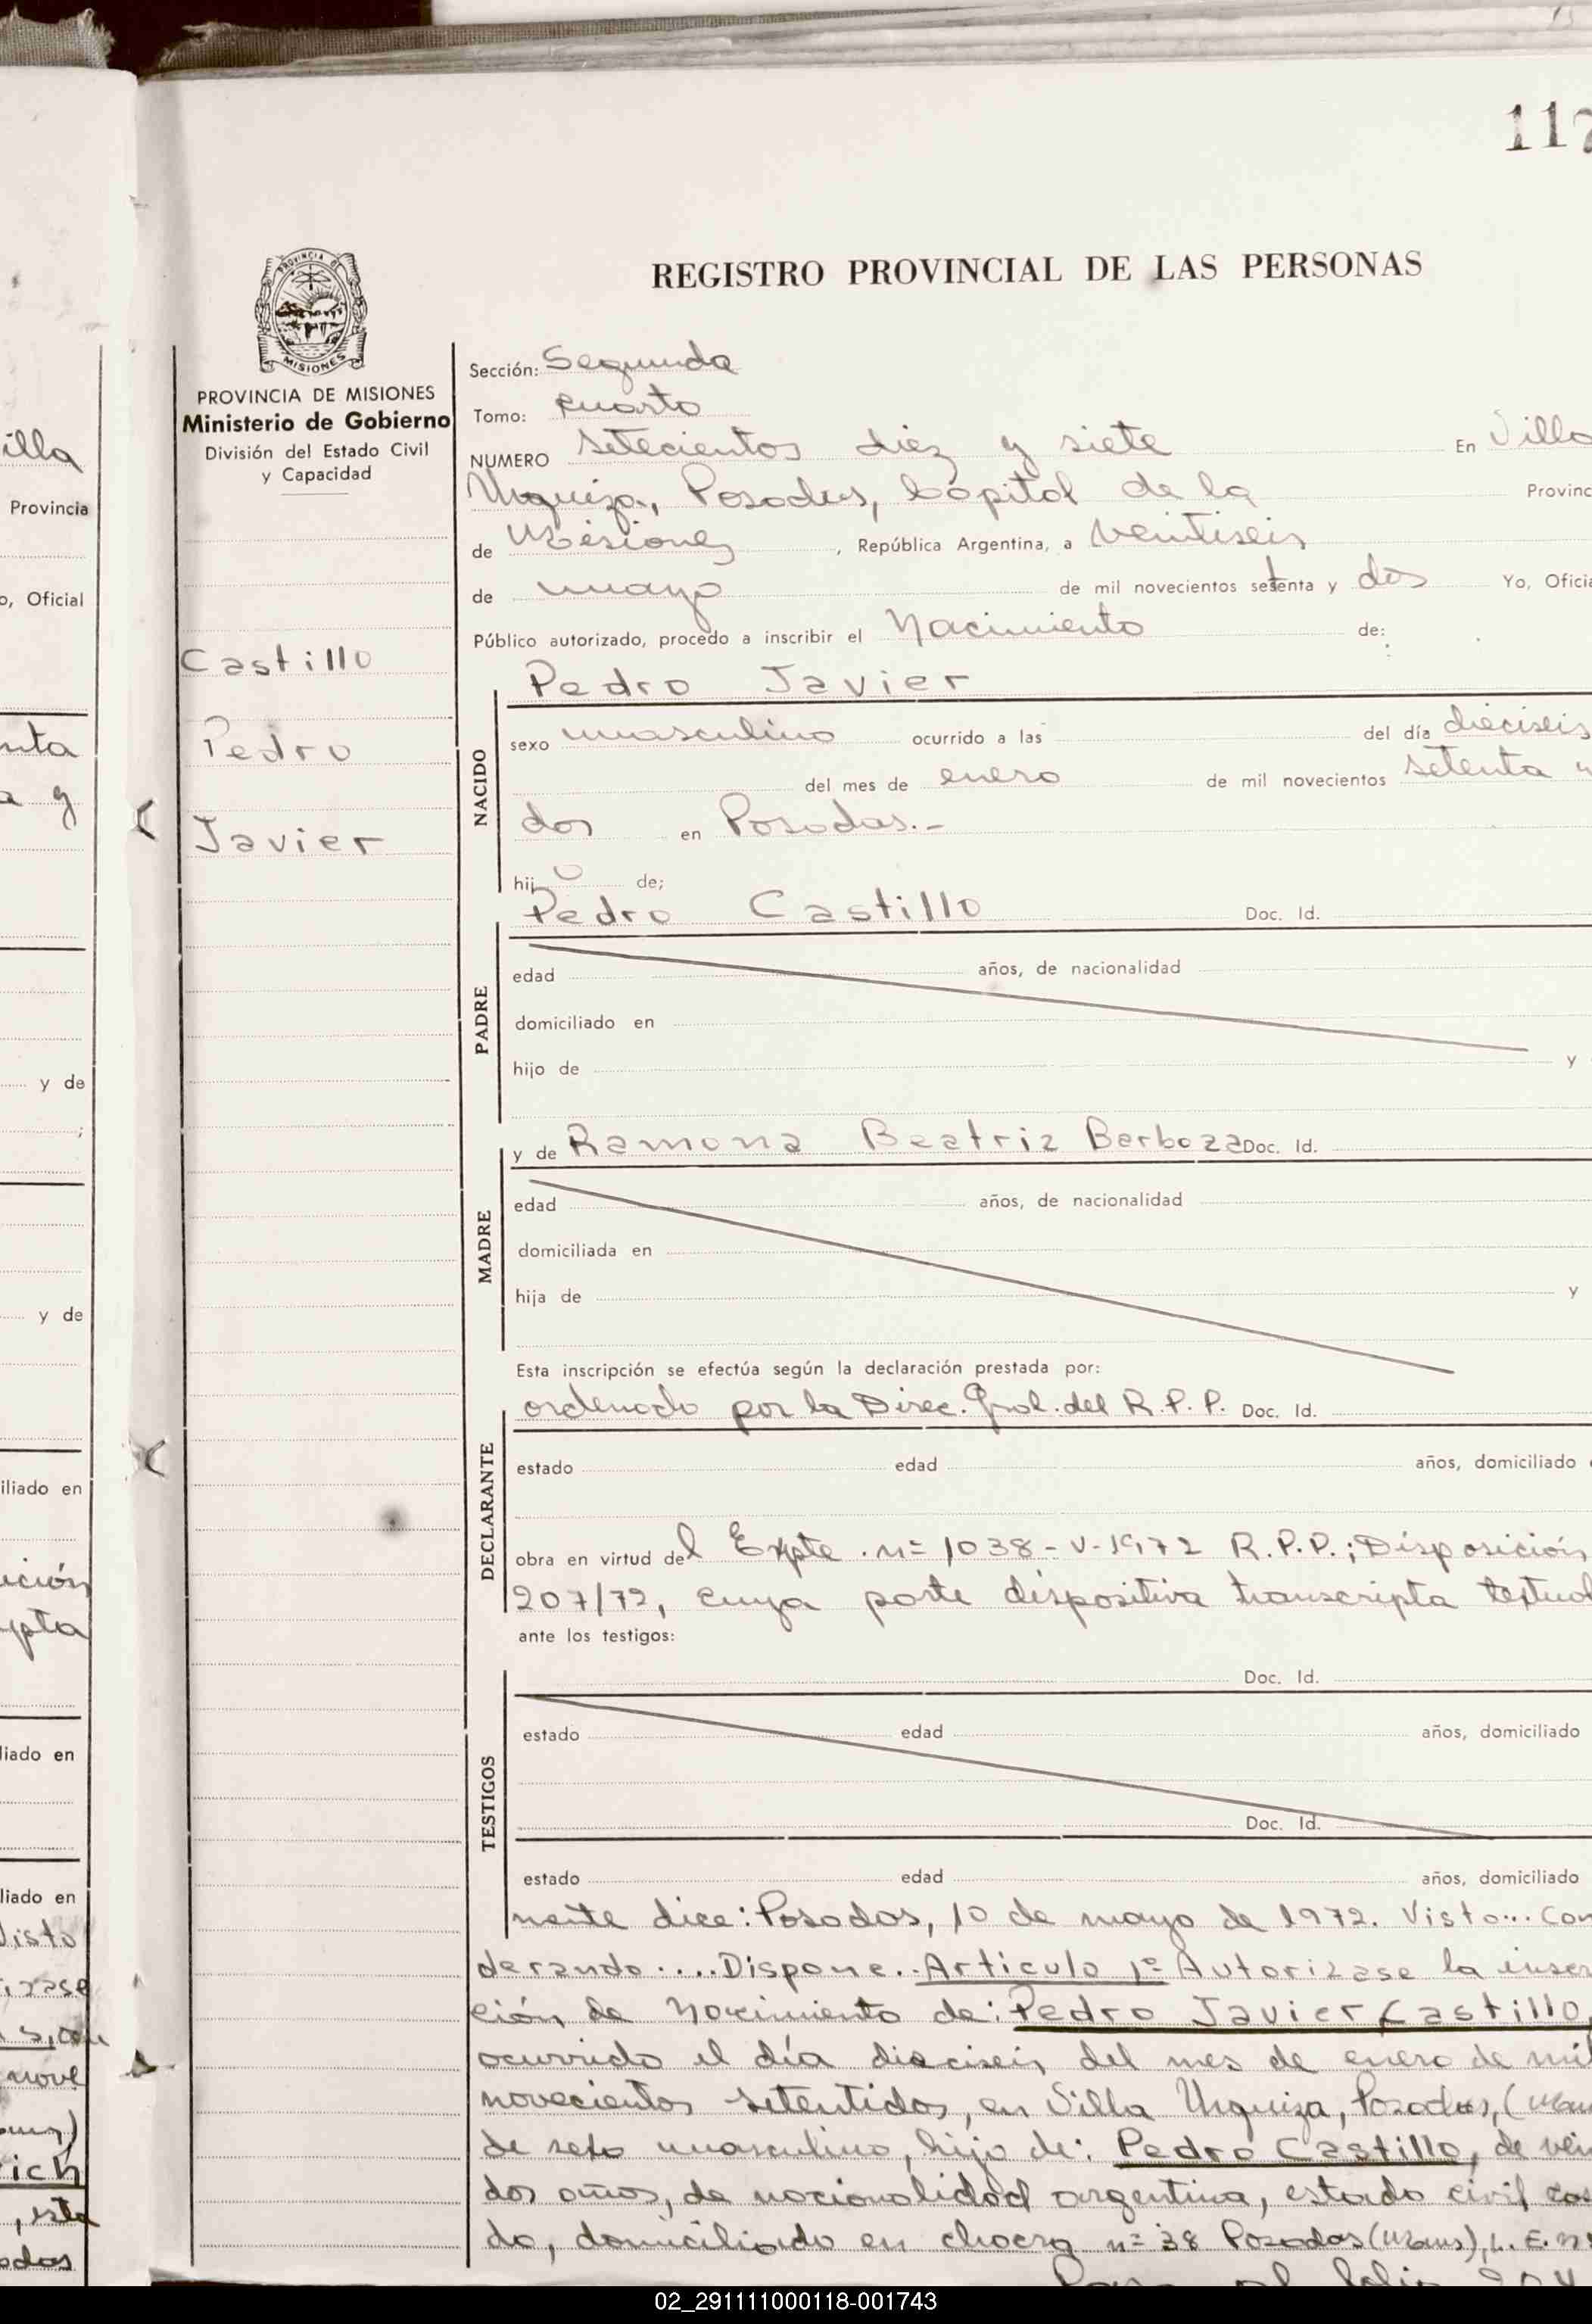 117
REGISTRO PROVINCIAL DE LAS PERSONAS
PROVINCIA DE MISIONES
PROVINCIA DE MISIONES
Ministerio de Gobierno
División del Estado Civil
y Capacidad
Castillo
Pedro
Javier
Sección: Segunda
Tomo: Cuarto
NUMERO setecientos diez y siete En Villa
Urquiza, Posadas, Capital de la Provinc
de Misiones, República Argentina, a veintiseis
de mayo de mil novecientos setenta y dos Yo, Oficia
Público autorizado, procedo a inscribir el Nacimiento de:
Pedro Javier
NACIDO
sexo masculino ocurrido a las del día dieciseis
del mes de enero de mil novecientos setenta y
dos en Posadas.-
hijo de;
Pedro Castillo Doc. Id.
PADRE
edad años, de nacionalidad
domiciliado en
hijo de y
y de Ramona Beatriz Barboza Doc. Id.
MADRE
edad años, de nacionalidad
domiciliada en
hija de y
Esta inscripción se efectúa según la declaración prestada por:
ordenado por la Direc. Gral. del R.P.P. Doc. Id.
DECLARANTE
estado edad años, domiciliado
obra en virtud del Expte. nº 1038-V-1972 R.P.P.; Disposición
207/72, cuya parte dispositiva transcripta textual
ante los testigos:
Doc. Id.
TESTIGOS
estado edad años, domiciliado
Doc. Id.
estado edad años, domiciliado
mente dice: Posadas, 10 de mayo de 1972. Visto... Con
derando....Dispone.. Articulo 1º Autorizase la inscr
ción de Nacimiento de: Pedro Javier Castillo,
ocurrido el día dieciseis del mes de enero de mil
novecientos setentidos, en Villa Urquiza, Posadas, (Mnes
de sexo masculino, hijo de: Pedro Castillo, de vein
dos años, de nacionalidad argentina, estado civil cas
do, domiciliado en chacra nº 38 Posadas (Mnes), L.E. nº
Pasa al folio
illa
Provincia
o, Oficial
nta
a y
y de
;
y de
iliado en
ición
ipta
liado en
liado en
Visto
nove
ich
02_291111000118-001743